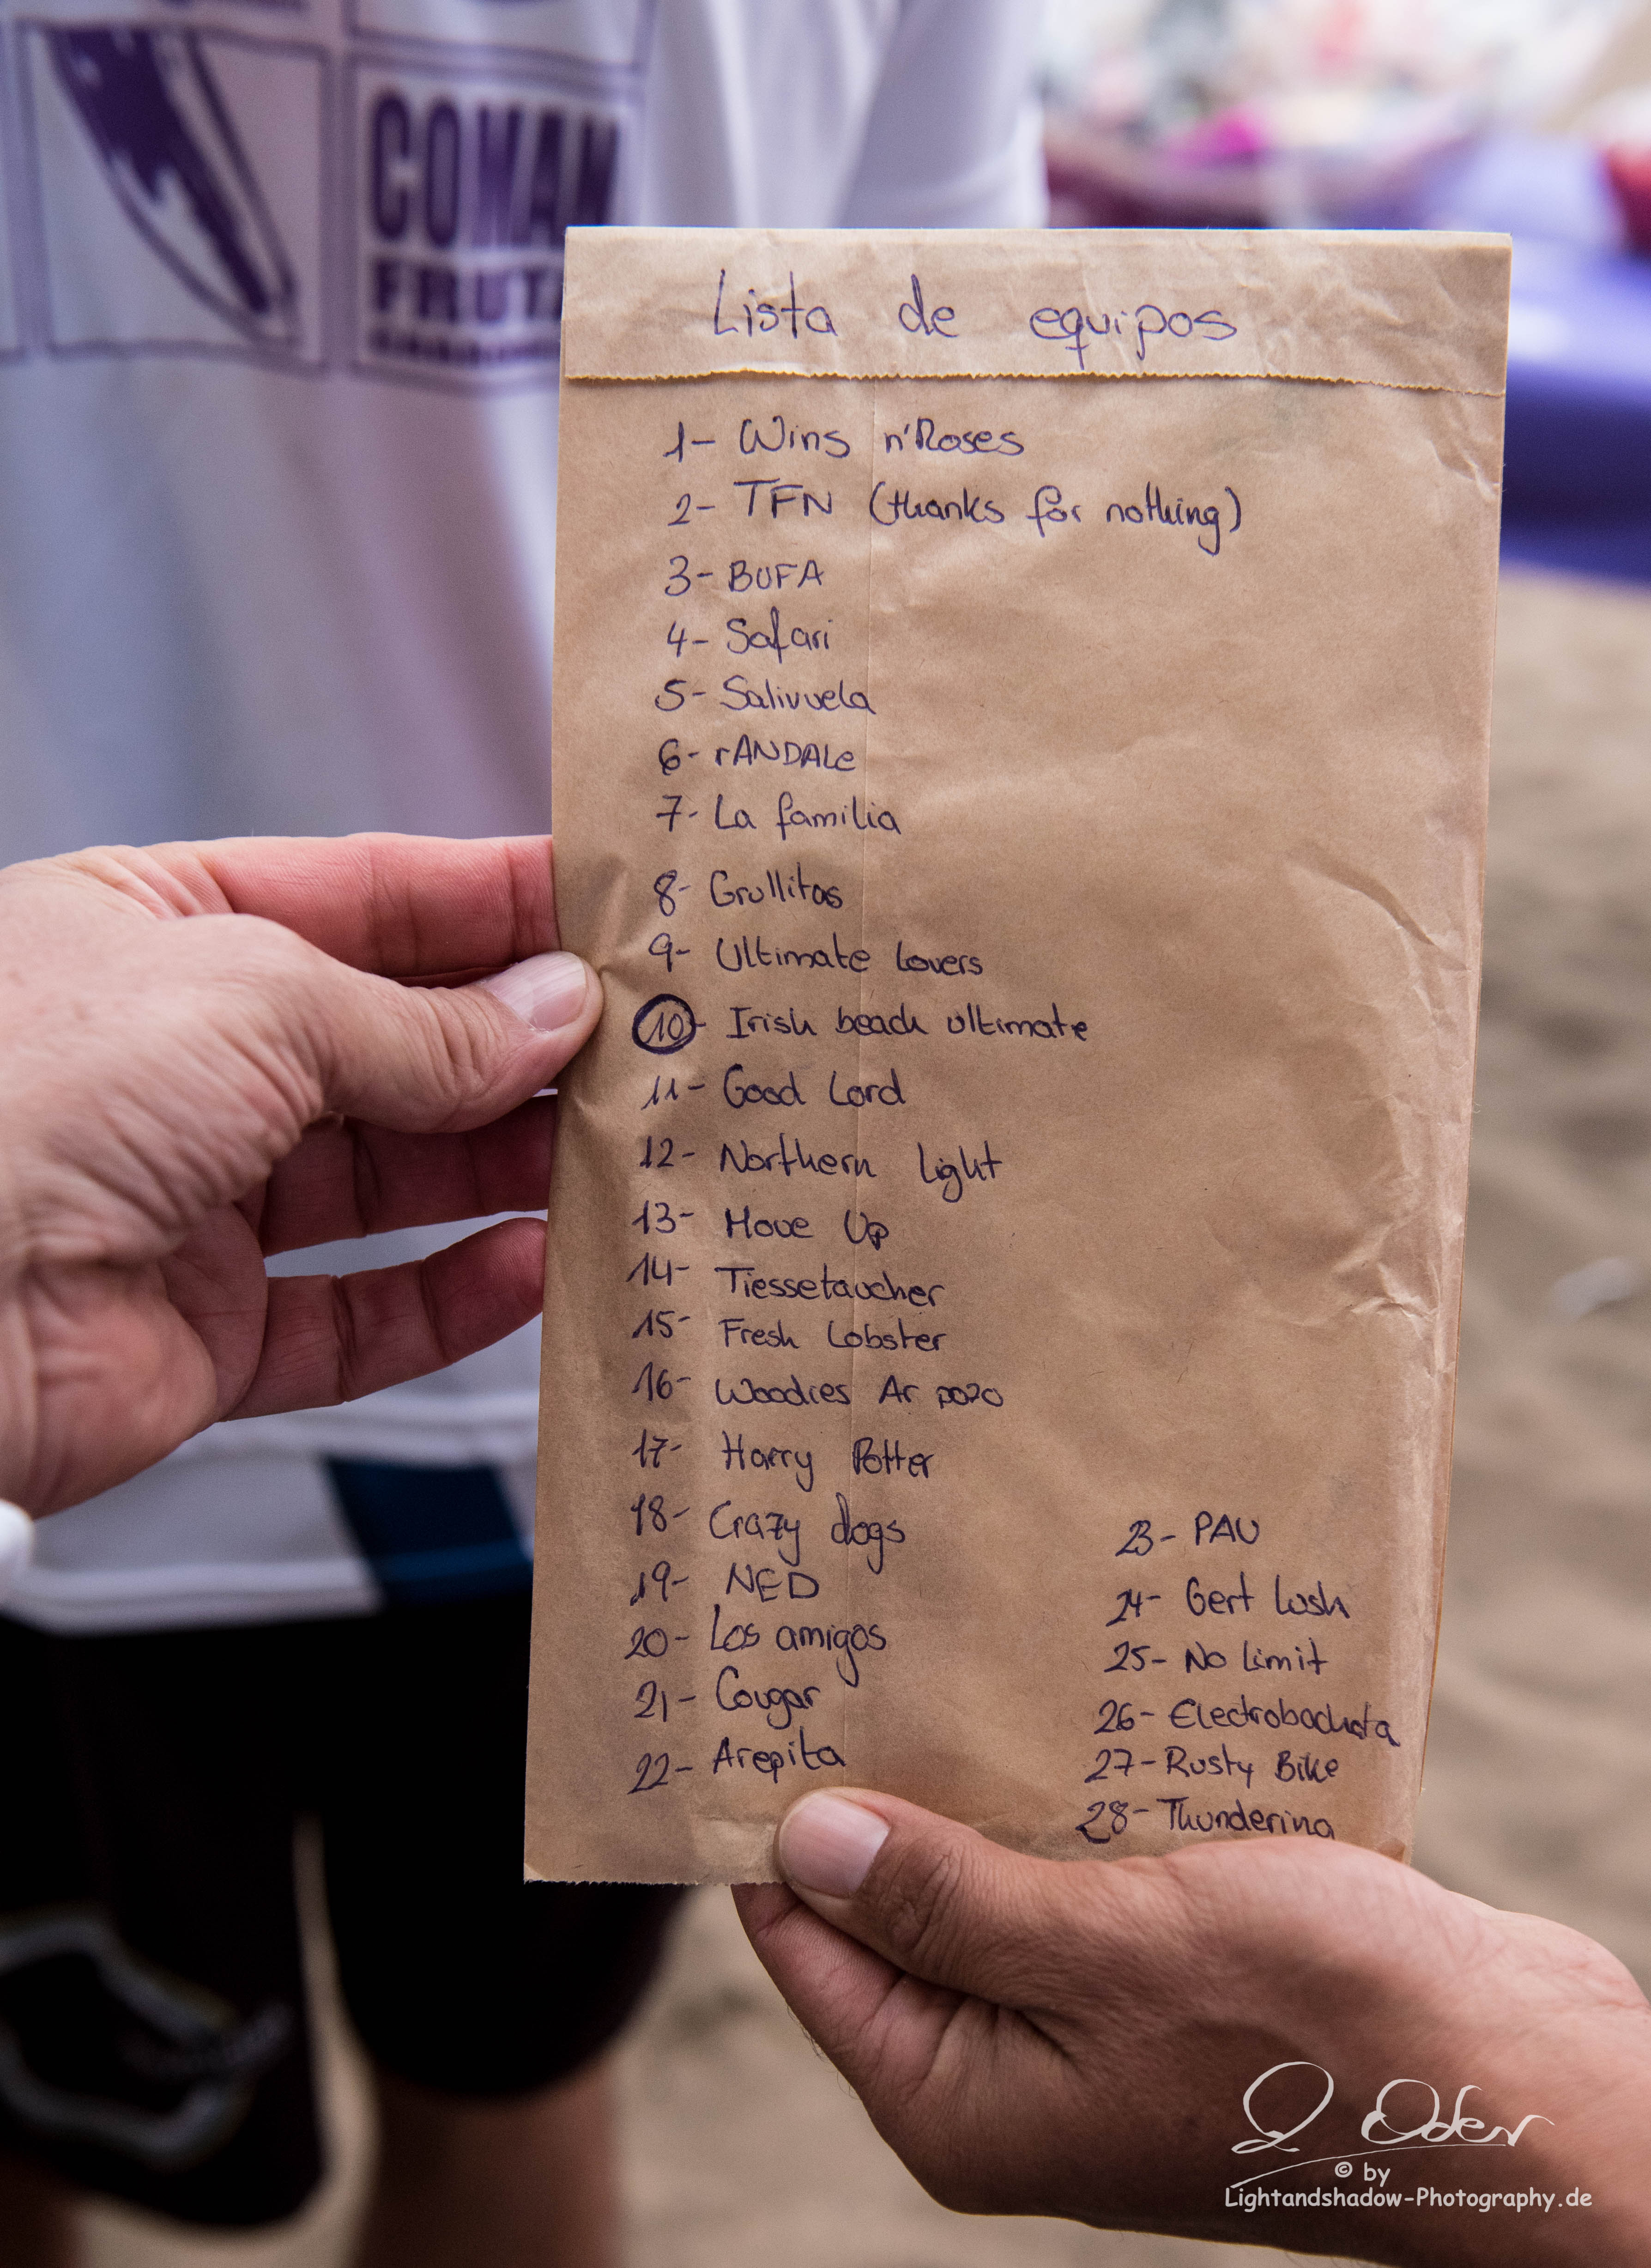 Lista de equipos
1- Wins n'Roses
2- TFN (thanks for nothing)
3- BUFA
4- Safari
5- Salivuela
6- rANDALe
7- La familia
8- Grullitas
9- Ultimate lovers
10- Irish beach ultimate
11- Good Lord
12- Northern Light
13- Move Up
14- Tiessetaucher
15- Fresh Lobster
16- Woodies Ar pozo
17- Harry Potter
18- Crazy dogs
19- NED
20- Los amigos
21- Cougar
22- Arepita
23- PAU
24- Gert Lush
25- No Limit
26- Electrobachata
27- Rusty Bike
28- Thundering
FRUT
© by
Lightandshadow-Photography.de